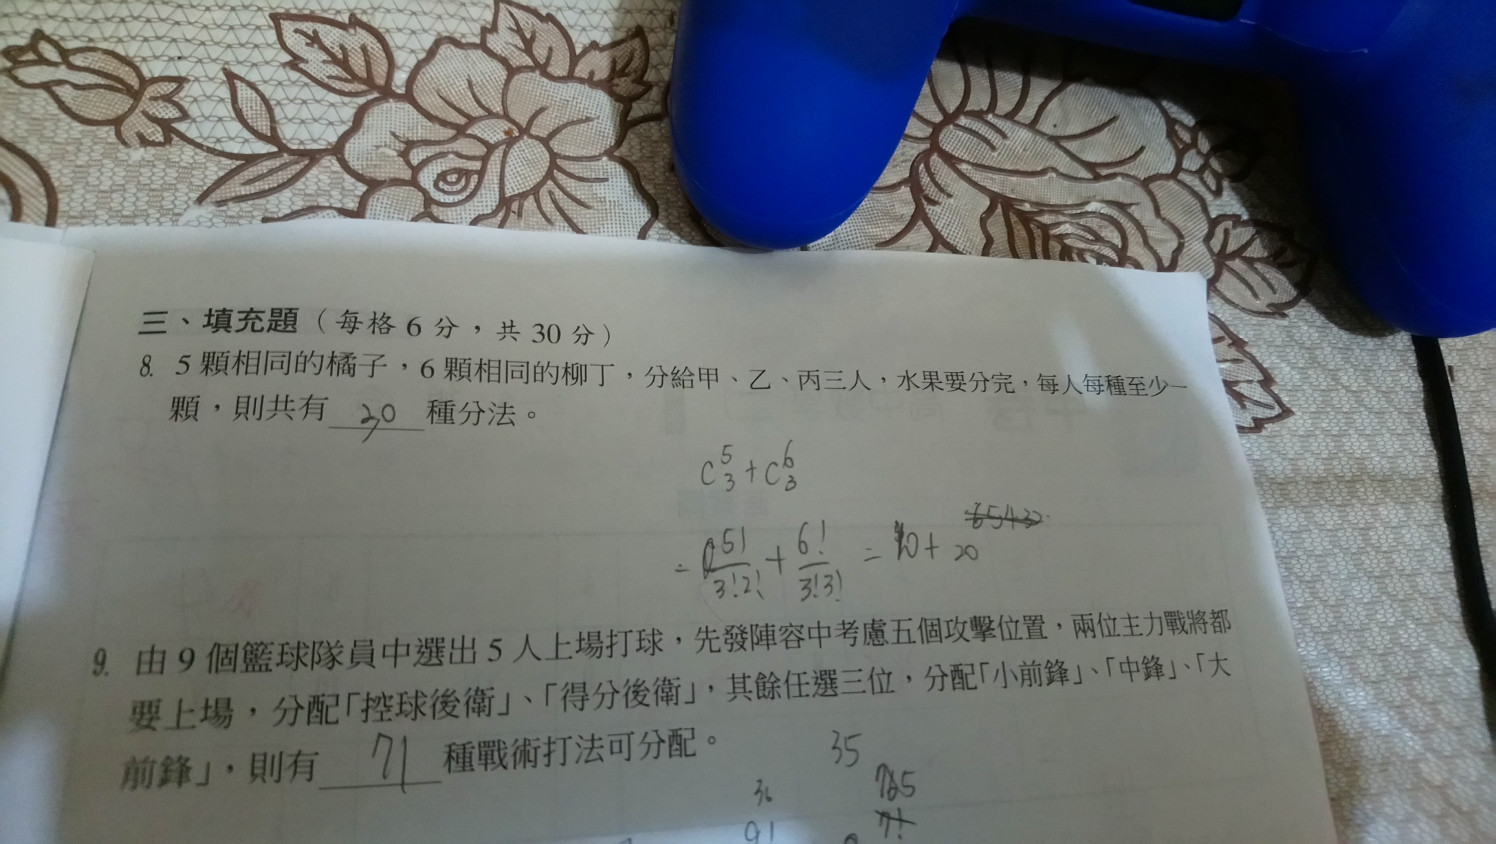 三、填充題（每格 6 分，共 30 分）
8. 5 顆相同的橘子，6 顆相同的柳丁，分給甲、乙、丙三人，水果要分完，每人每種至少一
顆，則共有 30 種分法。
C⁵₃+C⁶₃
= 5!/3!2! + 6!/3!3! = 10 + 20
9. 由 9 個籃球隊員中選出 5 人上場打球，先發陣容中考慮五個攻擊位置，兩位主力戰將都
要上場，分配「控球後衛」、「得分後衛」，其餘任選三位，分配「小前鋒」、「中鋒」、「大
前鋒」，則有 71 種戰術打法可分配。
35
36
9!
7!